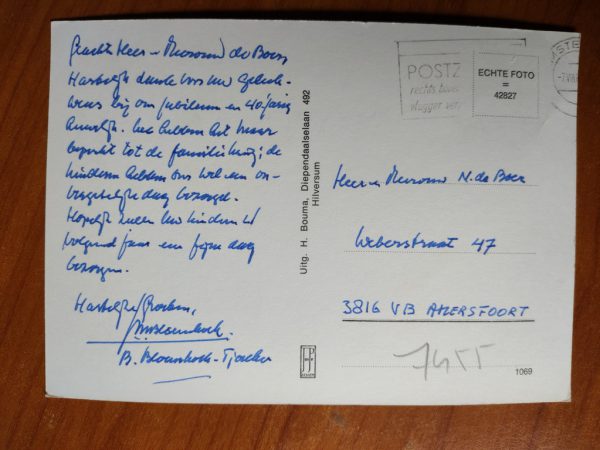 Geachte Heer en Mevrouw de Boer,
Hartelijk dank voor Uw geluk-
wens bij ons jubileum en 40-jarig
huwelijk. We hebben het maar
beperkt tot de familiekring; de
kinderen hebben ons wel een on-
vergetelijke dag bezorgd.
Hopelijk zullen Uw kinderen U
volgend jaar een fijne dag
bezorgen.
Hartelijke groeten,
B.
Uitg. H. Bouma, Diependaalselaan 492
Hilversum
POSTZ
rechts
ECHTE FOTO
=
42827
Heer en Mevrouw N. de Boer
Weberstraat 47
3816 VB AMERSFOORT
7455
1069